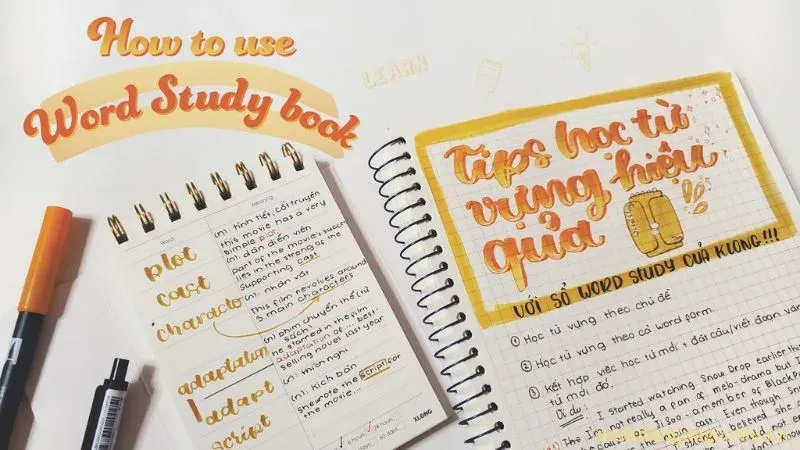 How to use
Word Study book
LEARN
Word
Meaning
plot
(n). tình tiết, cốt truyện
this movie has a very
simple plot.
cast
(n). dàn diễn viên
part of the movie's success
lies in the streng of the
supporting cast
character
(n). nhân vật
This film revolves around
3 main characters
adaptation
(n) phim chuyển thể (từ
sách)
he starred in the film
adaptation of ... best-
selling novel last year
adapt
(n) thích nghi
script
(n). kịch bản
she wrote the script for
the movie...
KLONG
Tips học từ
vựng hiệu
quả
VỚI SỔ WORD STUDY CỦA KLONG!!!
① Học từ vựng theo chủ đề
② Học từ vựng theo cả word form.
③ Kết hợp việc học từ mới + đặt câu/viết đoạn văn
từ mới đó.
Ví dụ: I started watching Snow Drop earlier this
I'm not really a fan of melo-drama but I
because of Jisoo - a member of BlackP
the main cast. Even though
believed she